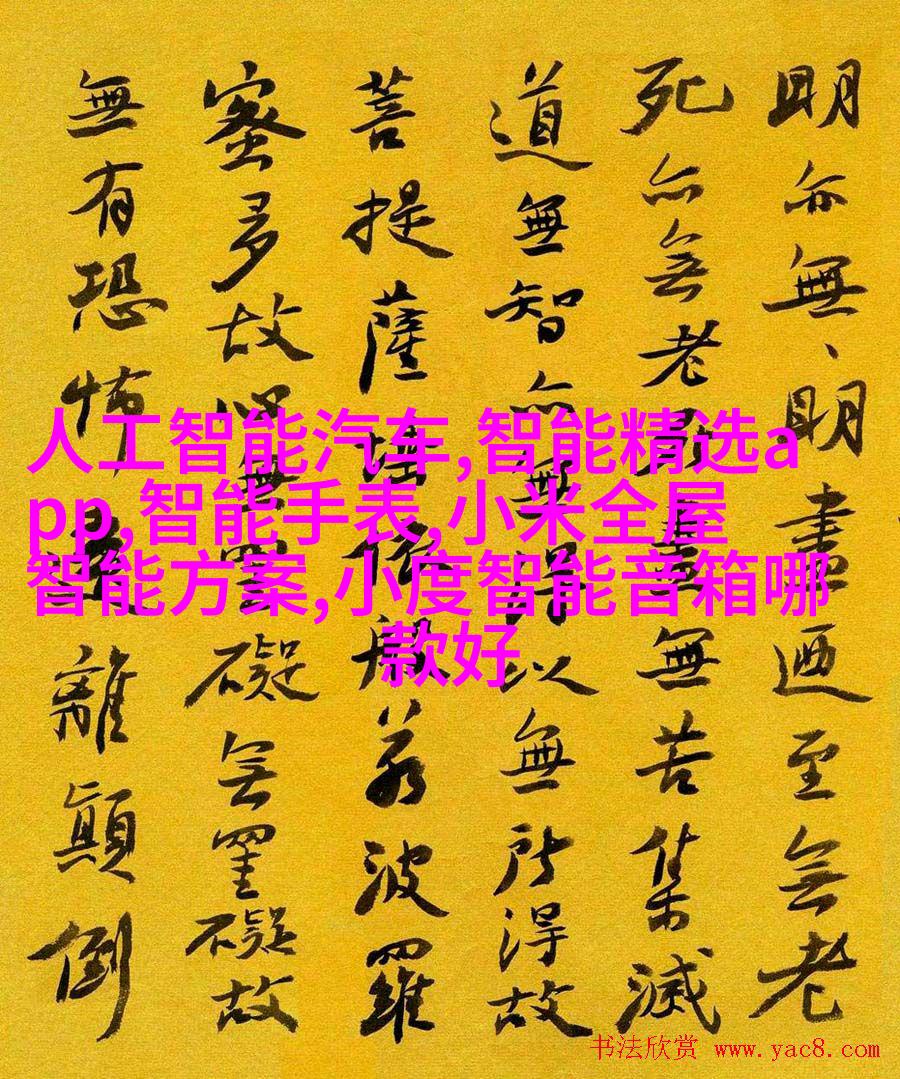 明亦無、明盡迺至無老
死亦無老死盡無苦集滅
道無智亦無得以無所得故
菩提薩埵依般若波羅
蜜多故心無罣礙無罣礙故
無有恐怖遠離顛倒
人工智能汽车,智能精选a
pp,智能手表,小米全屋
智能方案,小度智能音箱哪
款好
书法欣赏 www.yac8.com